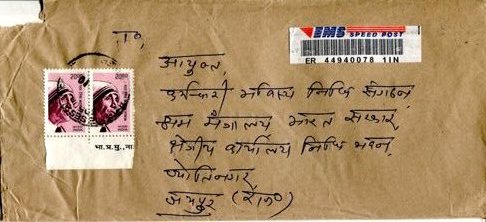 To,
EMS SPEED POST
ER 44940078 1IN
2000 2000
भा.प्र.मु., ना
आयुक्त,
कर्मचारी भविष्य निधि संगठन,
श्रम मंत्रालय भारत सरकार,
क्षेत्रीय कार्यालय निधि भवन,
ज्योतिनगर
जयपुर (राज०)